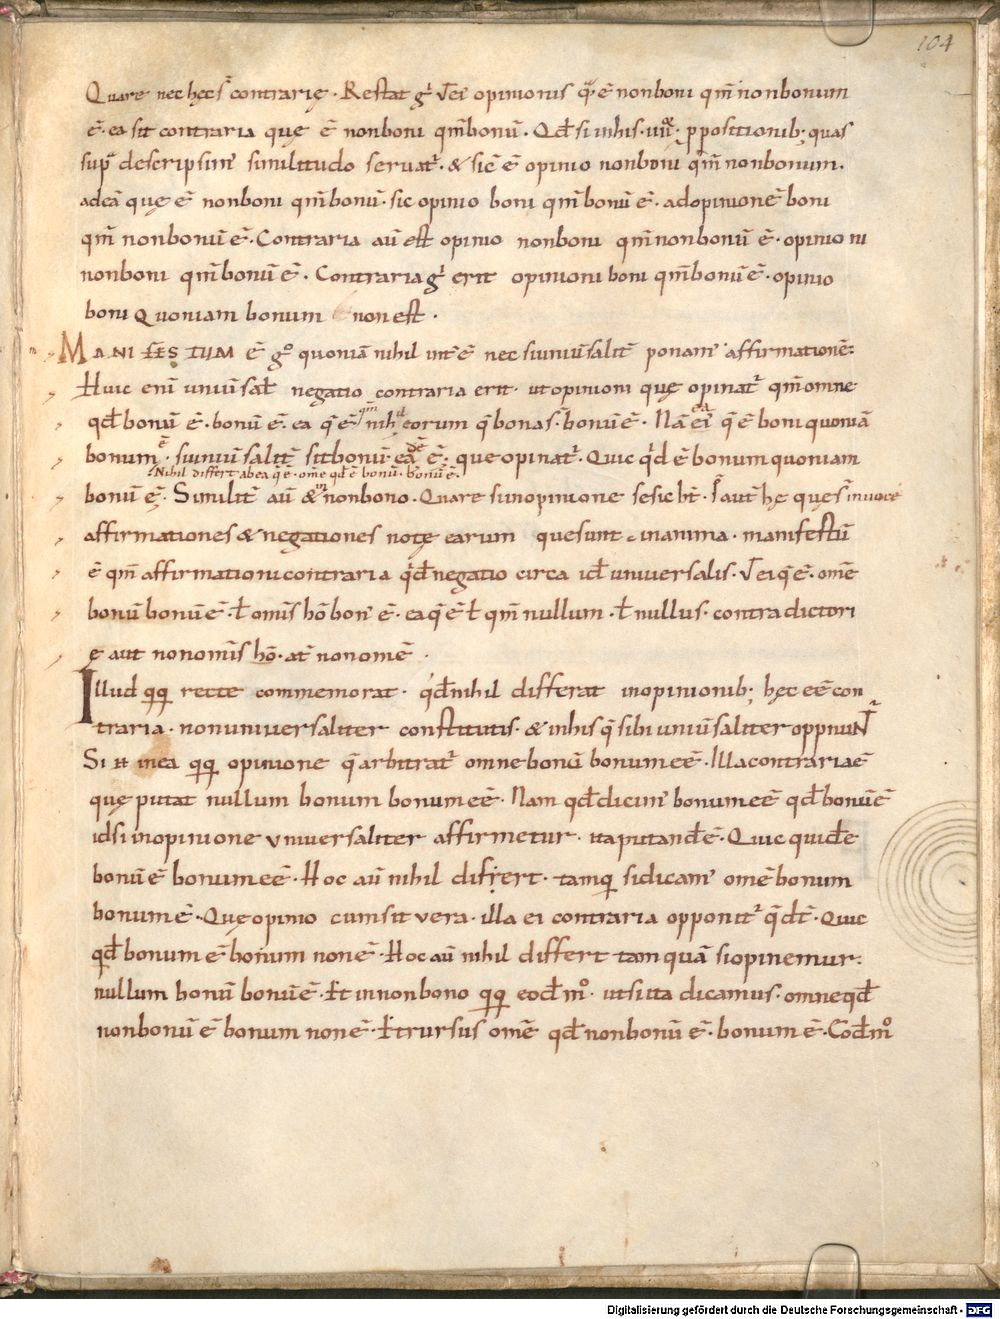 104
Quare nec hęc s̄ contrarię · Restat g͛ ut ei opinionis q̄ ē nonboni qm̄ nonbonum
ē · ea sit contraria quę ē nonboni qm̄ bonū · Qd̄ si inhis · IIII · ꝓpositionib; quas
sup̄ descripsim᾽ similitudo seruat᾽ · & sic ē opinio nonboni qm̄ nonbonum ·
ad eā quę ē nonboni qm̄ bonū · sic opinio boni qm̄ bonū ē · ad opinionē boni
qm̄ nonbonū ē · Contraria aū est opinio nonboni qm̄ nonbonū ē · opinioni
nonboni qm̄ bonū ē · Contraria g͛ erit opinioni boni qm̄ bonū ē · opinio
boni Quoniam bonum non est ·
MANIFESTUM ē g̊ quoniā nihil int̄ē nec si uniu͛salit̄ ponam᾽ affirmationē·
Huic eni uniu͛sal negatio contraria erit · ut opinioni quę opinat᾽ qm̄ omne
qd̄ bonū ē · bonū ē · ea q̄ ē qm̄ nihil eorum q̄ bona s̄ · bonū ē · Nā ei q̄ ē boni quoniā
bonum ē · si uniu͛salit̄ sit bonū · eadē ē · que opinat᾽ · Quicq̇d ē bonum quoniam
Nihil differt ab ea q̄ ē · om̄e qd̄ ē bonū · bonū ē ·
bonū ē · Similit̄ aū & in nonbono · Quare si in opinione se sic ht̄ · s̄ aut̄ hę quę s̄ in uoce
affirmationes & negationes notę earum que sunt in anima · manifestū
ē qm̄ affirmationi contraria qd̄ē negatio circa id universalis · Vt ei q̄ ē · om̄e
bonū bonū ē · ł omīs hō bon᾽ ē · ea q̄ ē ł qm̄ nullum · ł nullus · contradictori
ę aut non omīs hō · at̄ non om̄e ·
Illud qq; recte commemorat · qd̄ nihil differat in opinionib; hęc eē con
traria · non universaliter constitutis · & inhis q̄ sibi uniu͛saliter opponunt᾽
Si n̄ in ea qq; opinione q̄ arbitrat᾽ omne bonū bonum eē · Illa contraria ē
quę putat nullum bonum bonum eē · Nam qd̄ dicim᾽ bonum eē qd̄ bonū ē
id si in opinione universaliter affirmetur · ita putand̄ ē · Quicquid ē
bonū ē bonum eē · Hoc aū nihil differt · tamq̄ si dicam᾽ omē bonum
bonum ē · Quę opinio cum sit vera · illa ei contraria opponit᾽ q̄ dt̄ · Quic
qd̄ bonum ē bonum non ē · Hoc aū nihil differt tam quā si opinemur·
nullum bonū bonū ē · Et in nonbono qq; eod̄ m̊ · ut si ita dicamus · omne qd̄
nonbonū ē bonum non ē · Et rursus omē qd̄ nonbonū ē · bonum ē · Eod̄ m̊
Digitalisierung gefördert durch die Deutsche Forschungsgemeinschaft - DFG